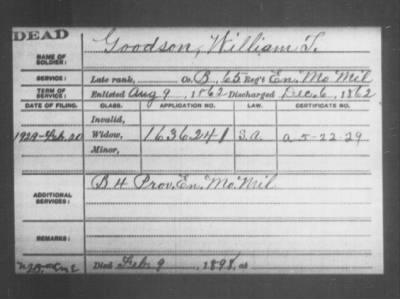 DEAD
NAME OF SOLDIER: Goodson, William T.
SERVICE: Late rank, Co. B, 65 Reg't En. Mo Mil
TERM OF SERVICE: Enlisted Aug 9, 1862 Discharged Dec. 6, 1862
DATE OF FILING. CLASS. APPLICATION NO. LAW. CERTIFICATE NO.
Invalid,
1929-Feb. 20 Widow, 1636241 S.A. a 5-22-29
Minor,
ADDITIONAL SERVICES: B 4 Prov. En. Mo. Mil
REMARKS:
Died Feb 9, 1898, at